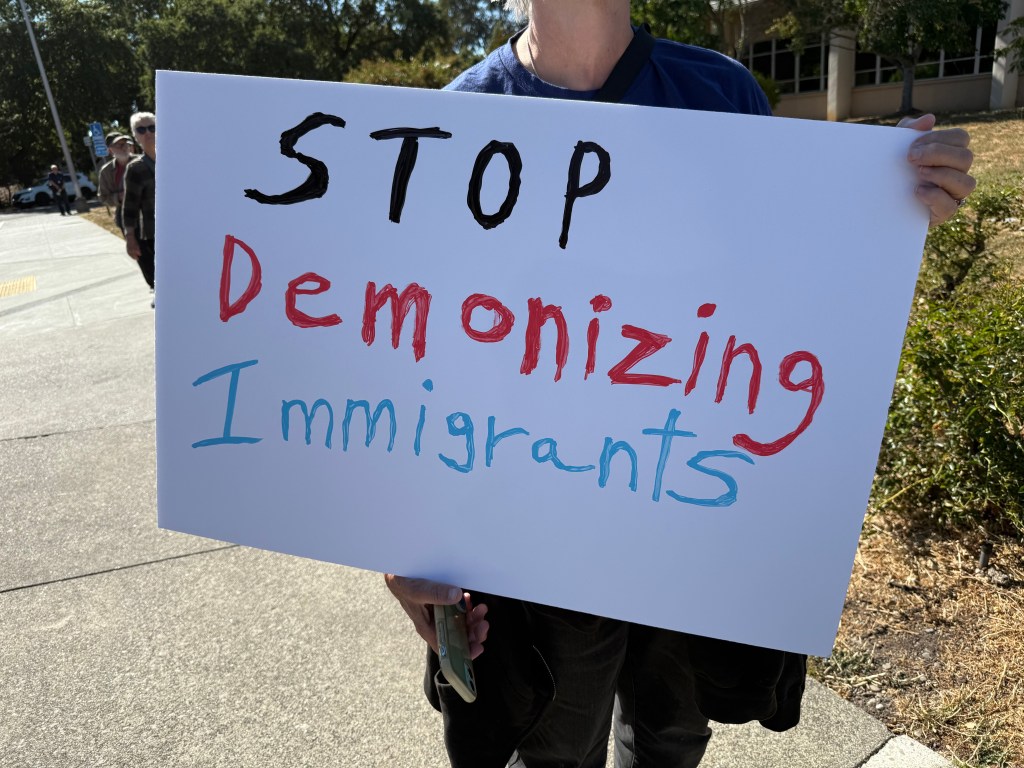 STOP
Demonizing
Immigrants